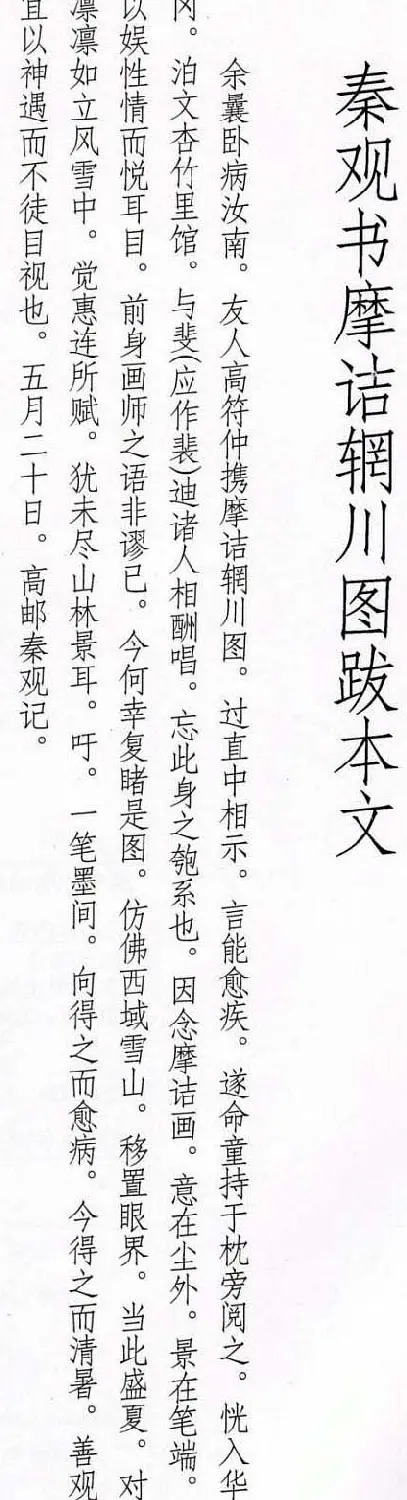 秦观书摩诘辋川图跋本文
余曩卧病汝南。友人高符仲携摩诘辋川图。过直中相示。言能愈疾。遂命童持于枕旁阅之。恍入华
冈。泊文杏竹里馆。与斐(应作裴)迪诸人相酬唱。忘此身之匏系也。因念摩诘画。意在尘外。景在笔端。
以娱性情而悦耳目。前身画师之语非谬已。今何幸复睹是图。仿佛西域雪山。移置眼界。当此盛夏。对
凛凛如立风雪中。觉惠连所赋。犹未尽山林景耳。吁。一笔墨间。向得之而愈病。今得之而清暑。善观
宜以神遇而不徒目视也。五月二十日。高邮秦观记。